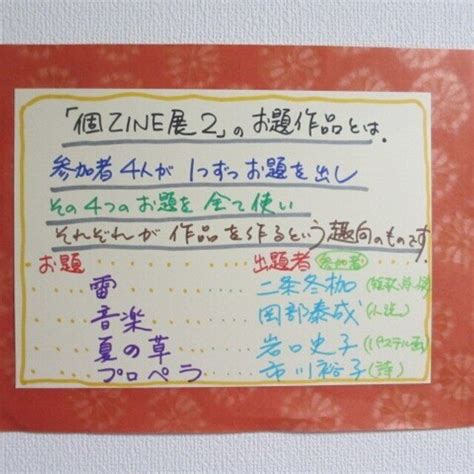 「個ZINE展2」のお題作品とは、
参加者4人が1つずつお題を出し
その4つのお題を全て使い
それぞれが作品を作るという趣向のものです。
お題 出題者(参加者)
雷 二条冬枷
音楽 岡部泰成(小説)
夏の草 岩口史子(パステル画)
プロペラ 市川裕子(詩)